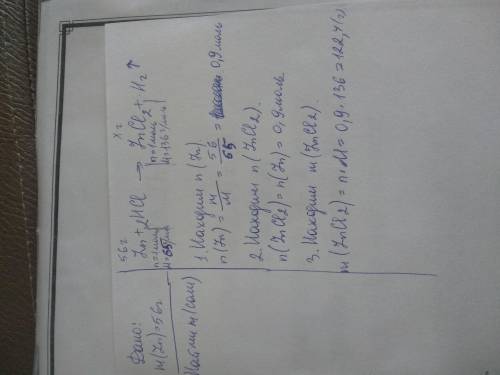 Дано:
m(Zn)=56г
Найти m(соли)
56г Xг
Zn + 2HCl → ZnCl2 + H2 ↑
n=1моль n=1моль
M=65 M=136г/моль
1. Находим n(Zn).
n(Zn) = m/M = 56/65 = 0,9 моль
2. Находим n(ZnCl2).
n(ZnCl2) = n(Zn) = 0,9 моль
3. Находим m(ZnCl2).
m(ZnCl2) = n·M = 0,9·136 = 122,4(г)